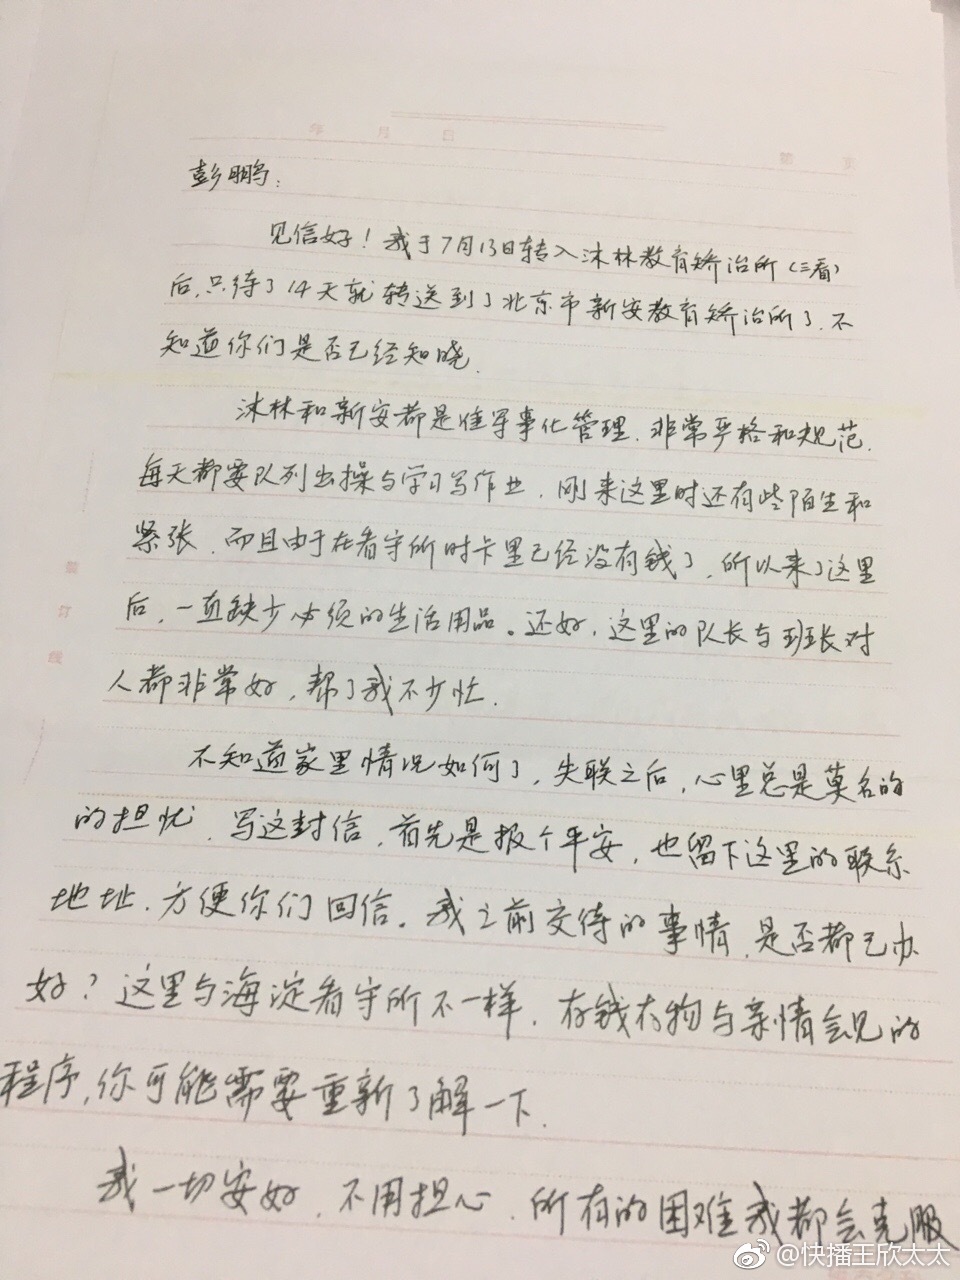 年 月 日
第 页
彭鹏:
见信好！我于7月13日转入沐林教育矫治所(三看)
后,只待了14天就转送到了北京市新安教育矫治所了.不
知道你们是否已经知晓.
沐林和新安都是准军事化管理.非常严格和规范.
每天都要队列出操与学习写作业.刚来这里时还有些陌生和
紧张.而且由于在看守所时卡里已经没有钱了,所以来了这里
后,一直缺少必须的生活用品。还好,这里的队长与班长对
人都非常好,帮了我不少忙.
不知道家里情况如何了,失联之后,心里总是莫名的
的担忧.写这封信,首先是报个平安,也留下这里的联系
地址.方便你们回信。我之前交待的事情,是否都已办
好?这里与海淀看守所不一样.存钱存物与亲情会见的
程序,你可能需要重新了解一下.
我一切安好.不用担心.所有的困难我都会克服
装
订
线
@快播王欣太太